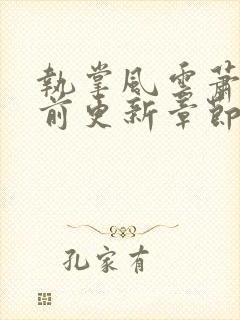 執掌風雲蕭
前更新章節
孔家有